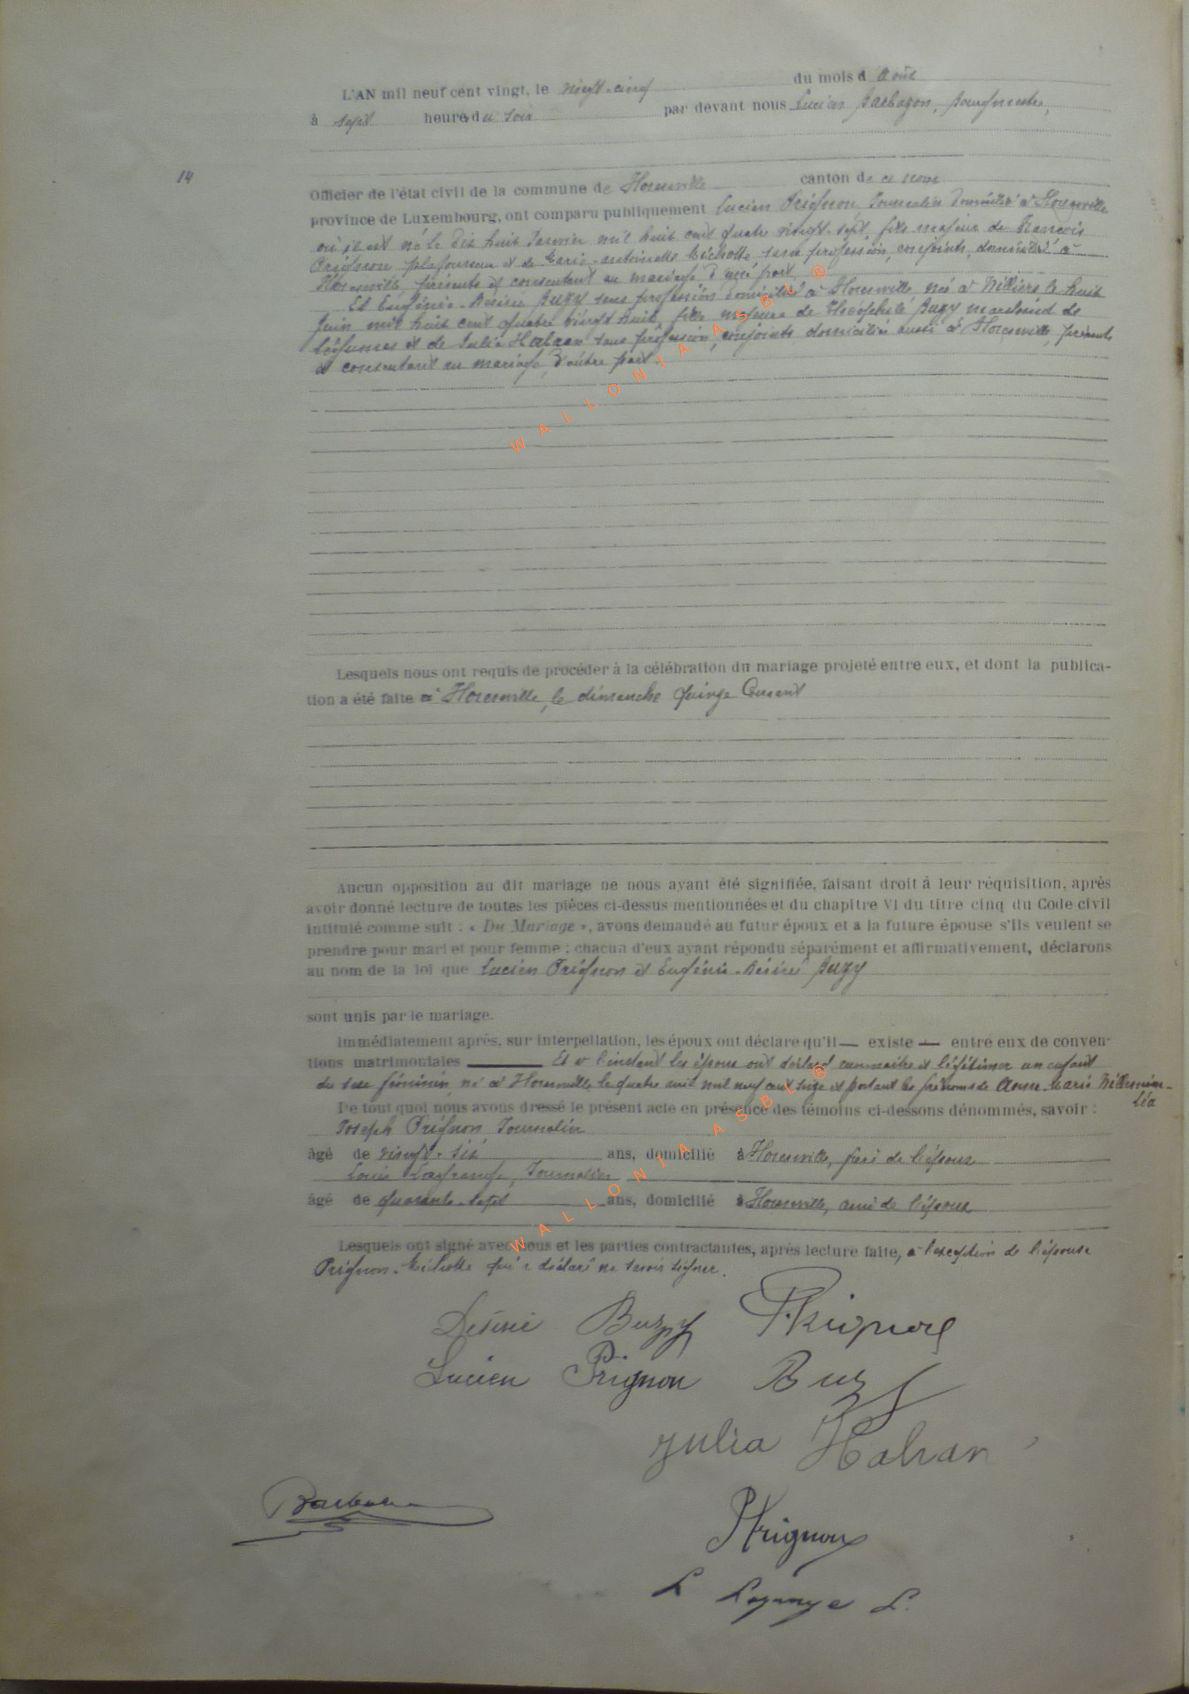 L'AN mil neuf cent vingt, le vingt-cinq du mois d'Août
à sept heures du soir par devant nous Lucien Barbazon, bourgmestre,
14
Officier de l'état civil de la commune de Florenville canton de ce nom
province de Luxembourg, ont comparu publiquement Lucien Prignon, Journalier domicilié à Florenville
où il est né le dix huit Janvier mil huit cent quatre vingt-sept, fils majeur de François
Prignon, plafonneur et de Marie-Antoinette Michotte, sans profession, conjoints, domiciliés à
Florenville, présents et consentant au mariage d'une part,
Et Eugénie-Désirée Buzy sans profession domiciliée à Florenville née à Williers le huit
Juin mil huit cent quatre vingt huit, fille majeure de Théophile Buzy marchand de
légumes et de Julia Habran sans profession, conjoints domiciliés aussi à Florenville, présents
et consentant au mariage, d'autre part.
Lesquels nous ont requis de procéder à la célébration du mariage projeté entre eux, et dont la publica-
tion a été faite à Florenville, le dimanche quinze Courant
Aucun opposition au dit mariage ne nous ayant été signifiée, faisant droit à leur réquisition, après
avoir donné lecture de toutes les pièces ci-dessus mentionnées et du chapitre VI du titre cinq du Code civil
intitulé comme suit : « Du Mariage », avons demandé au futur époux et a la future épouse s'ils veulent se
prendre pour mari et pour femme : chacun d'eux ayant répondu séparément et affirmativement, déclarons
au nom de la loi que Lucien Prignon et Eugénie-Désirée Buzy
sont unis par le mariage.
Immédiatement après, sur interpellation, les époux ont déclaré qu'il — existe — entre eux de conven-
tions matrimoniales — Et à l'instant les époux ont déclaré reconnaître et légitimer un enfant
du sexe féminin, né à Florenville le quatre avril mil neuf cent seize et portant les prénoms de Anne-Marie
Léa
De tout quoi nous avons dressé le présent acte en présence des témoins ci-dessons dénommés, savoir :
Joseph Prignon Journalier
âgé de vingt-six ans, domicilié à Florenville, frère de l'époux
Louis Lagrange, Journalier
âgé de quarante-sept ans, domicilié à Florenville, ami de l'époux
Lesquels ont signé avec nous et les parties contractantes, après lecture faite, à l'exception de l'épouse
Prignon-Michotte qui a déclaré ne savoir signer.
Désiré Buzy Prignon
Lucien Prignon Buzy
Julia Habran
Prignon
L Lagrange L.
WALLONIA ASBL ®
WALLONIA ASBL ®